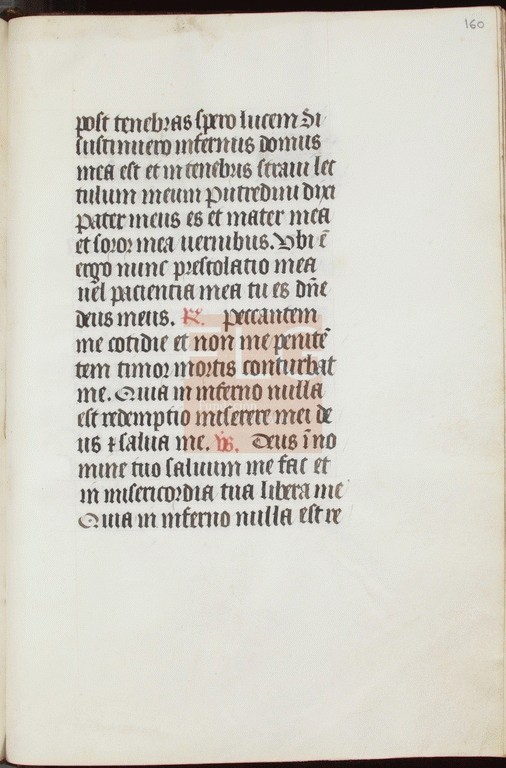 160
post tenebras spero lucem Si
sustinuero infernus domus
mea est et in tenebris straui lec
tulum meum Putredini dixi
Pater meus es et mater mea
et soror mea uermibus. Vbi ē
ergo nunc prestolatio mea
uel paciencia mea tu es dn̄e
deus meus. R̷. Peccantem
me cotidie et non me penitē
tem timor mortis conturbat
me. Quia in inferno nulla
est redemptio miserere mei de
us ⁊ salua me. V̷. Deus ī no
mine tuo saluum me fac et
in misericordia tua libera me
Quia in inferno nulla est re